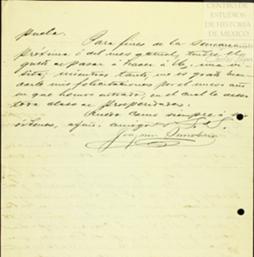 CENTRO DE
ESTUDIOS
DE HISTORIA
DE MEXICO
puela.
Para fines de la Semana
próxima ó del mes actual, tendré el
gusto de pasar á hacer á U. una vi-
sita; mientras tanto, me es grato
mis felicitaciones por el nuevo año
en que hemos entrado, en el cual le deseo
toda clase de prosperidades.
Quedo como siempre á sus
órdenes, afmo. amigo y S. S.
Joaquín